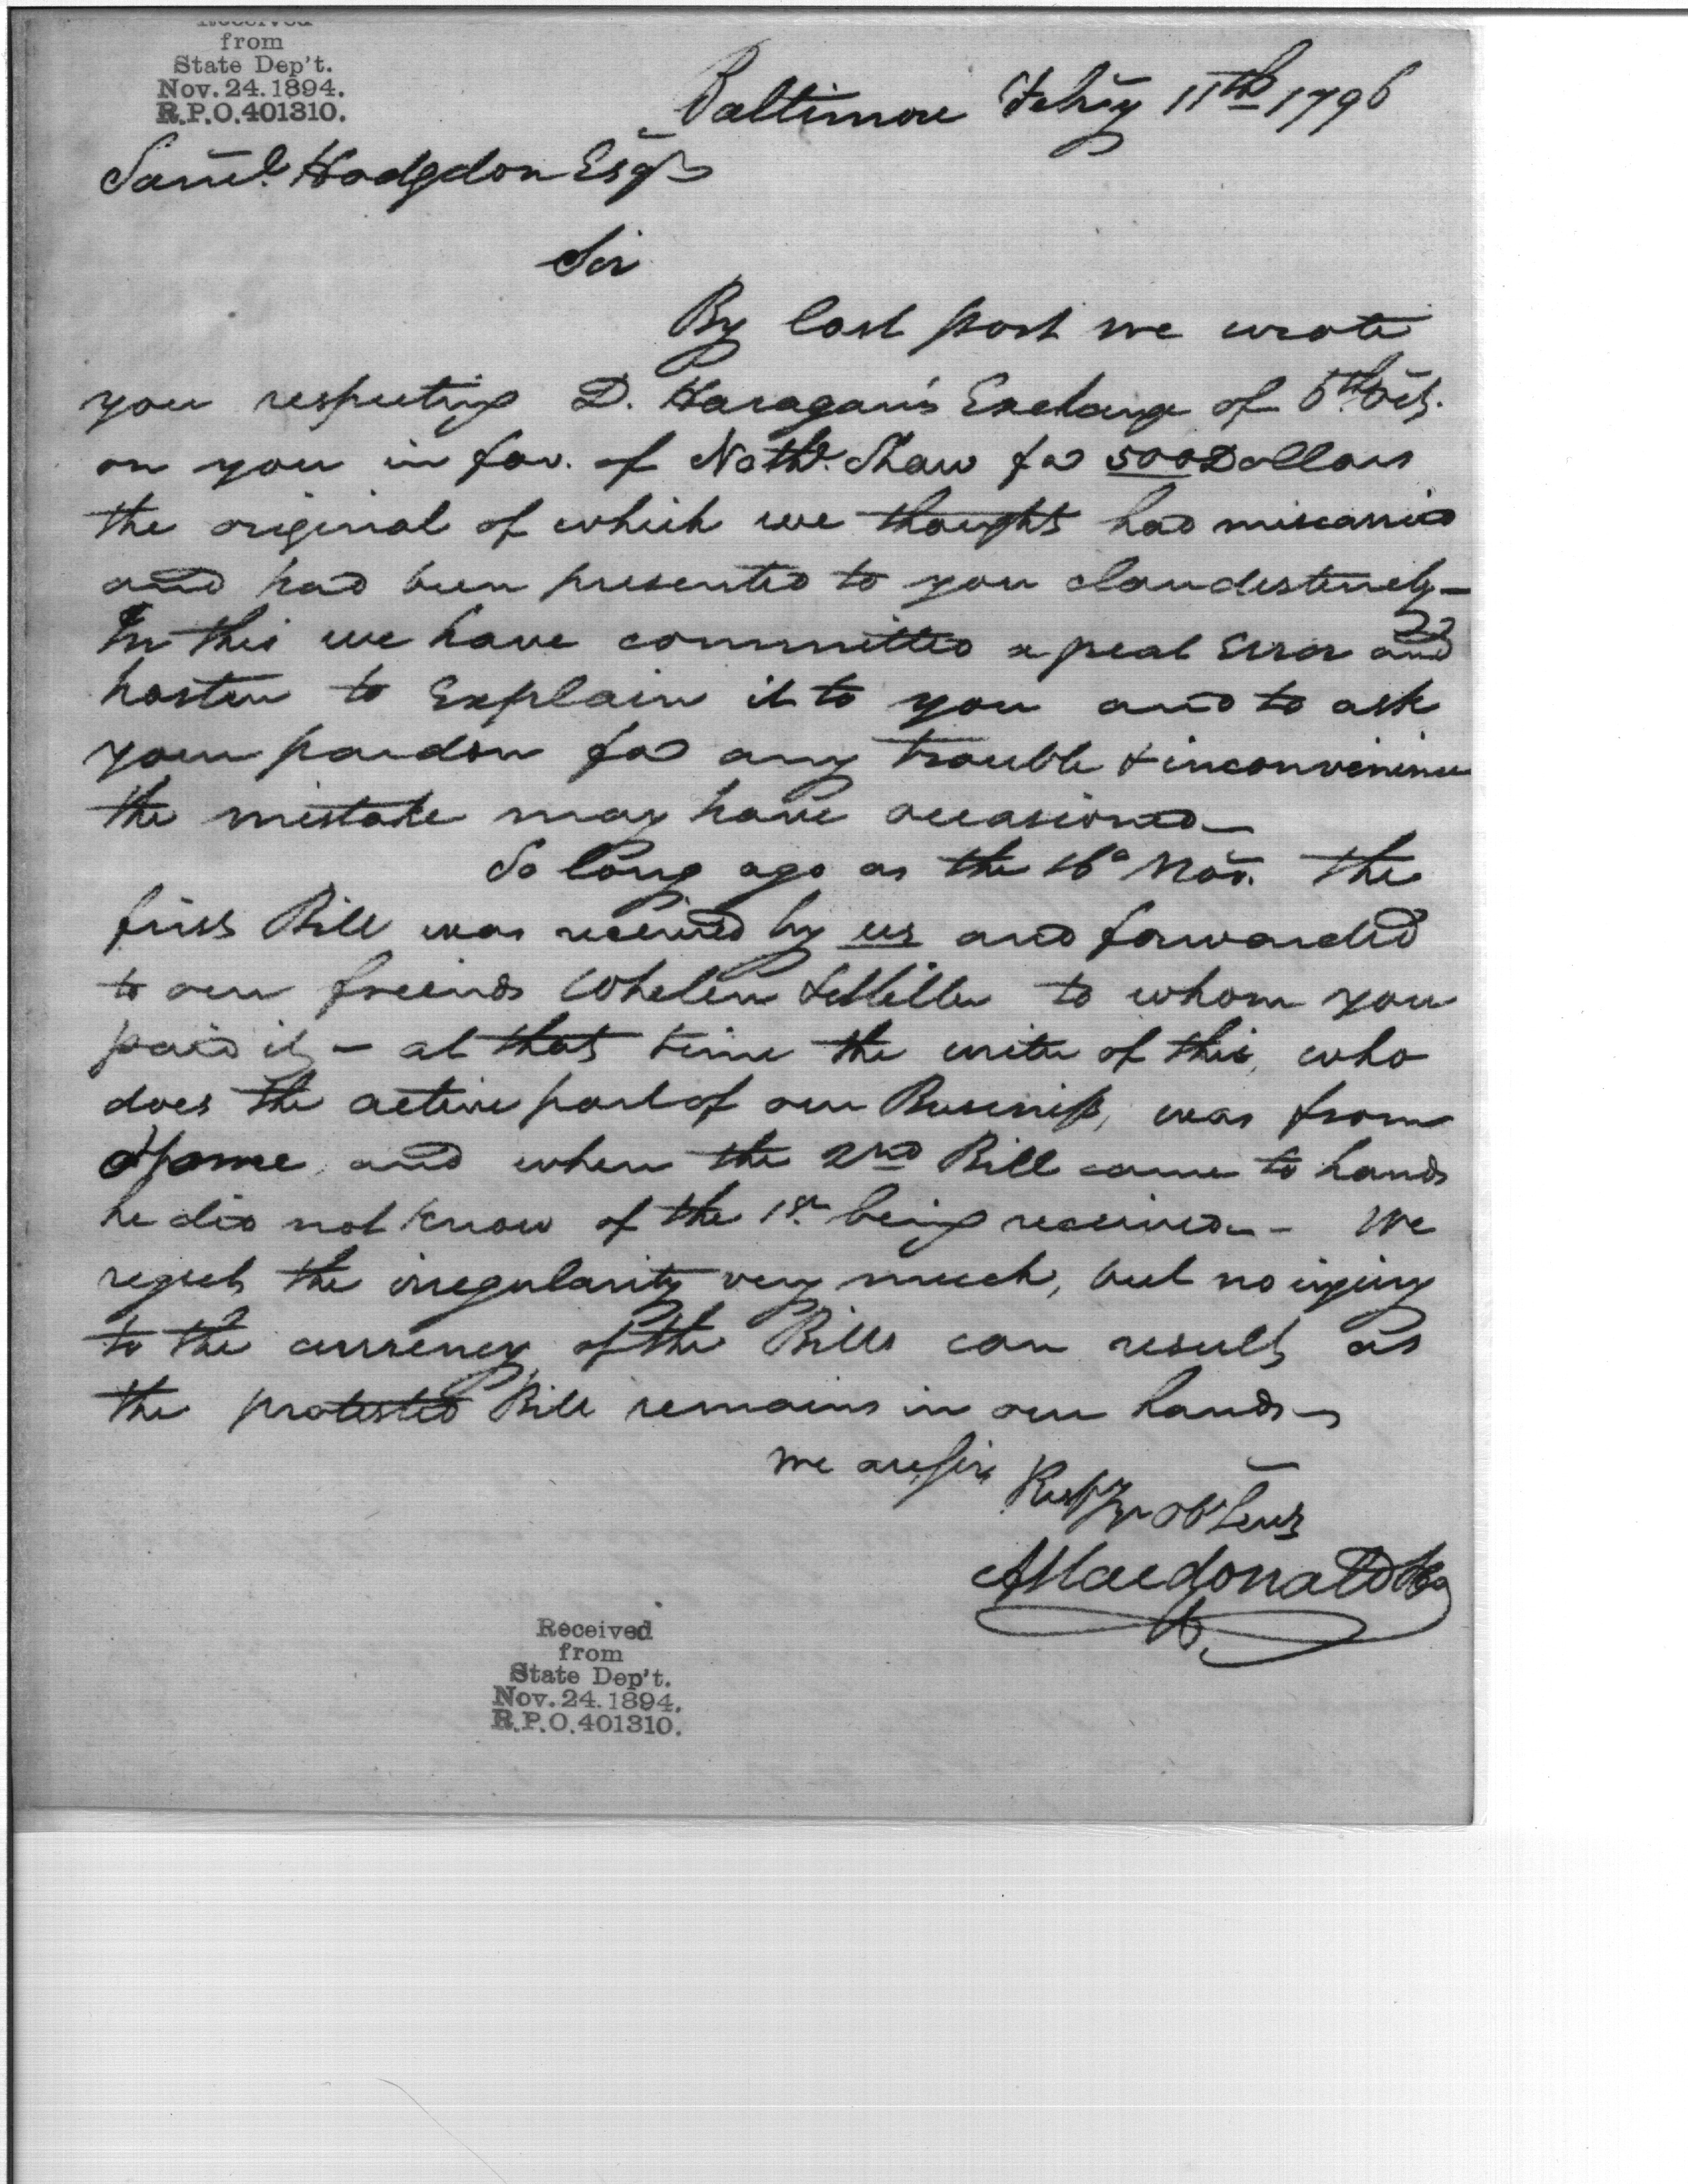 Received
from
State Dep't.
Nov. 24. 1894.
R.P.O. 401310.
Baltimore Febry 11th 1796
Saml. Hodgdon Esqr
Sir
By last post we wrote
you respecting D. Haragan's Exchange of 5th Oct.
on you in fav. of Nathl. Shaw for 500 Dollars
the original of which we thought had miscarried
and had been presented to you clandestinely—
In this we have committed a great Error and
hasten to Explain it to you and to ask
your pardon for any trouble & inconvenience
the mistake may have occasioned—
So long ago as the 16o Nov. the
first Bill was received by us and forwarded
to our friends Whelen & Miller to whom you
paid it,— at that time the writer of this, who
does the active part of our Business, was from
Home, and when the 2nd Bill came to hands
he did not know of the 1st. being received— We
regret the irregularity very much, but no injury
to the currency of the Bills can result, as
the protested Bill remains in our hands—
We are Sir
Respy yr ob Servts
A Macdonald & Co
Received
from
State Dep't.
Nov. 24. 1894.
R.P.O. 401310.